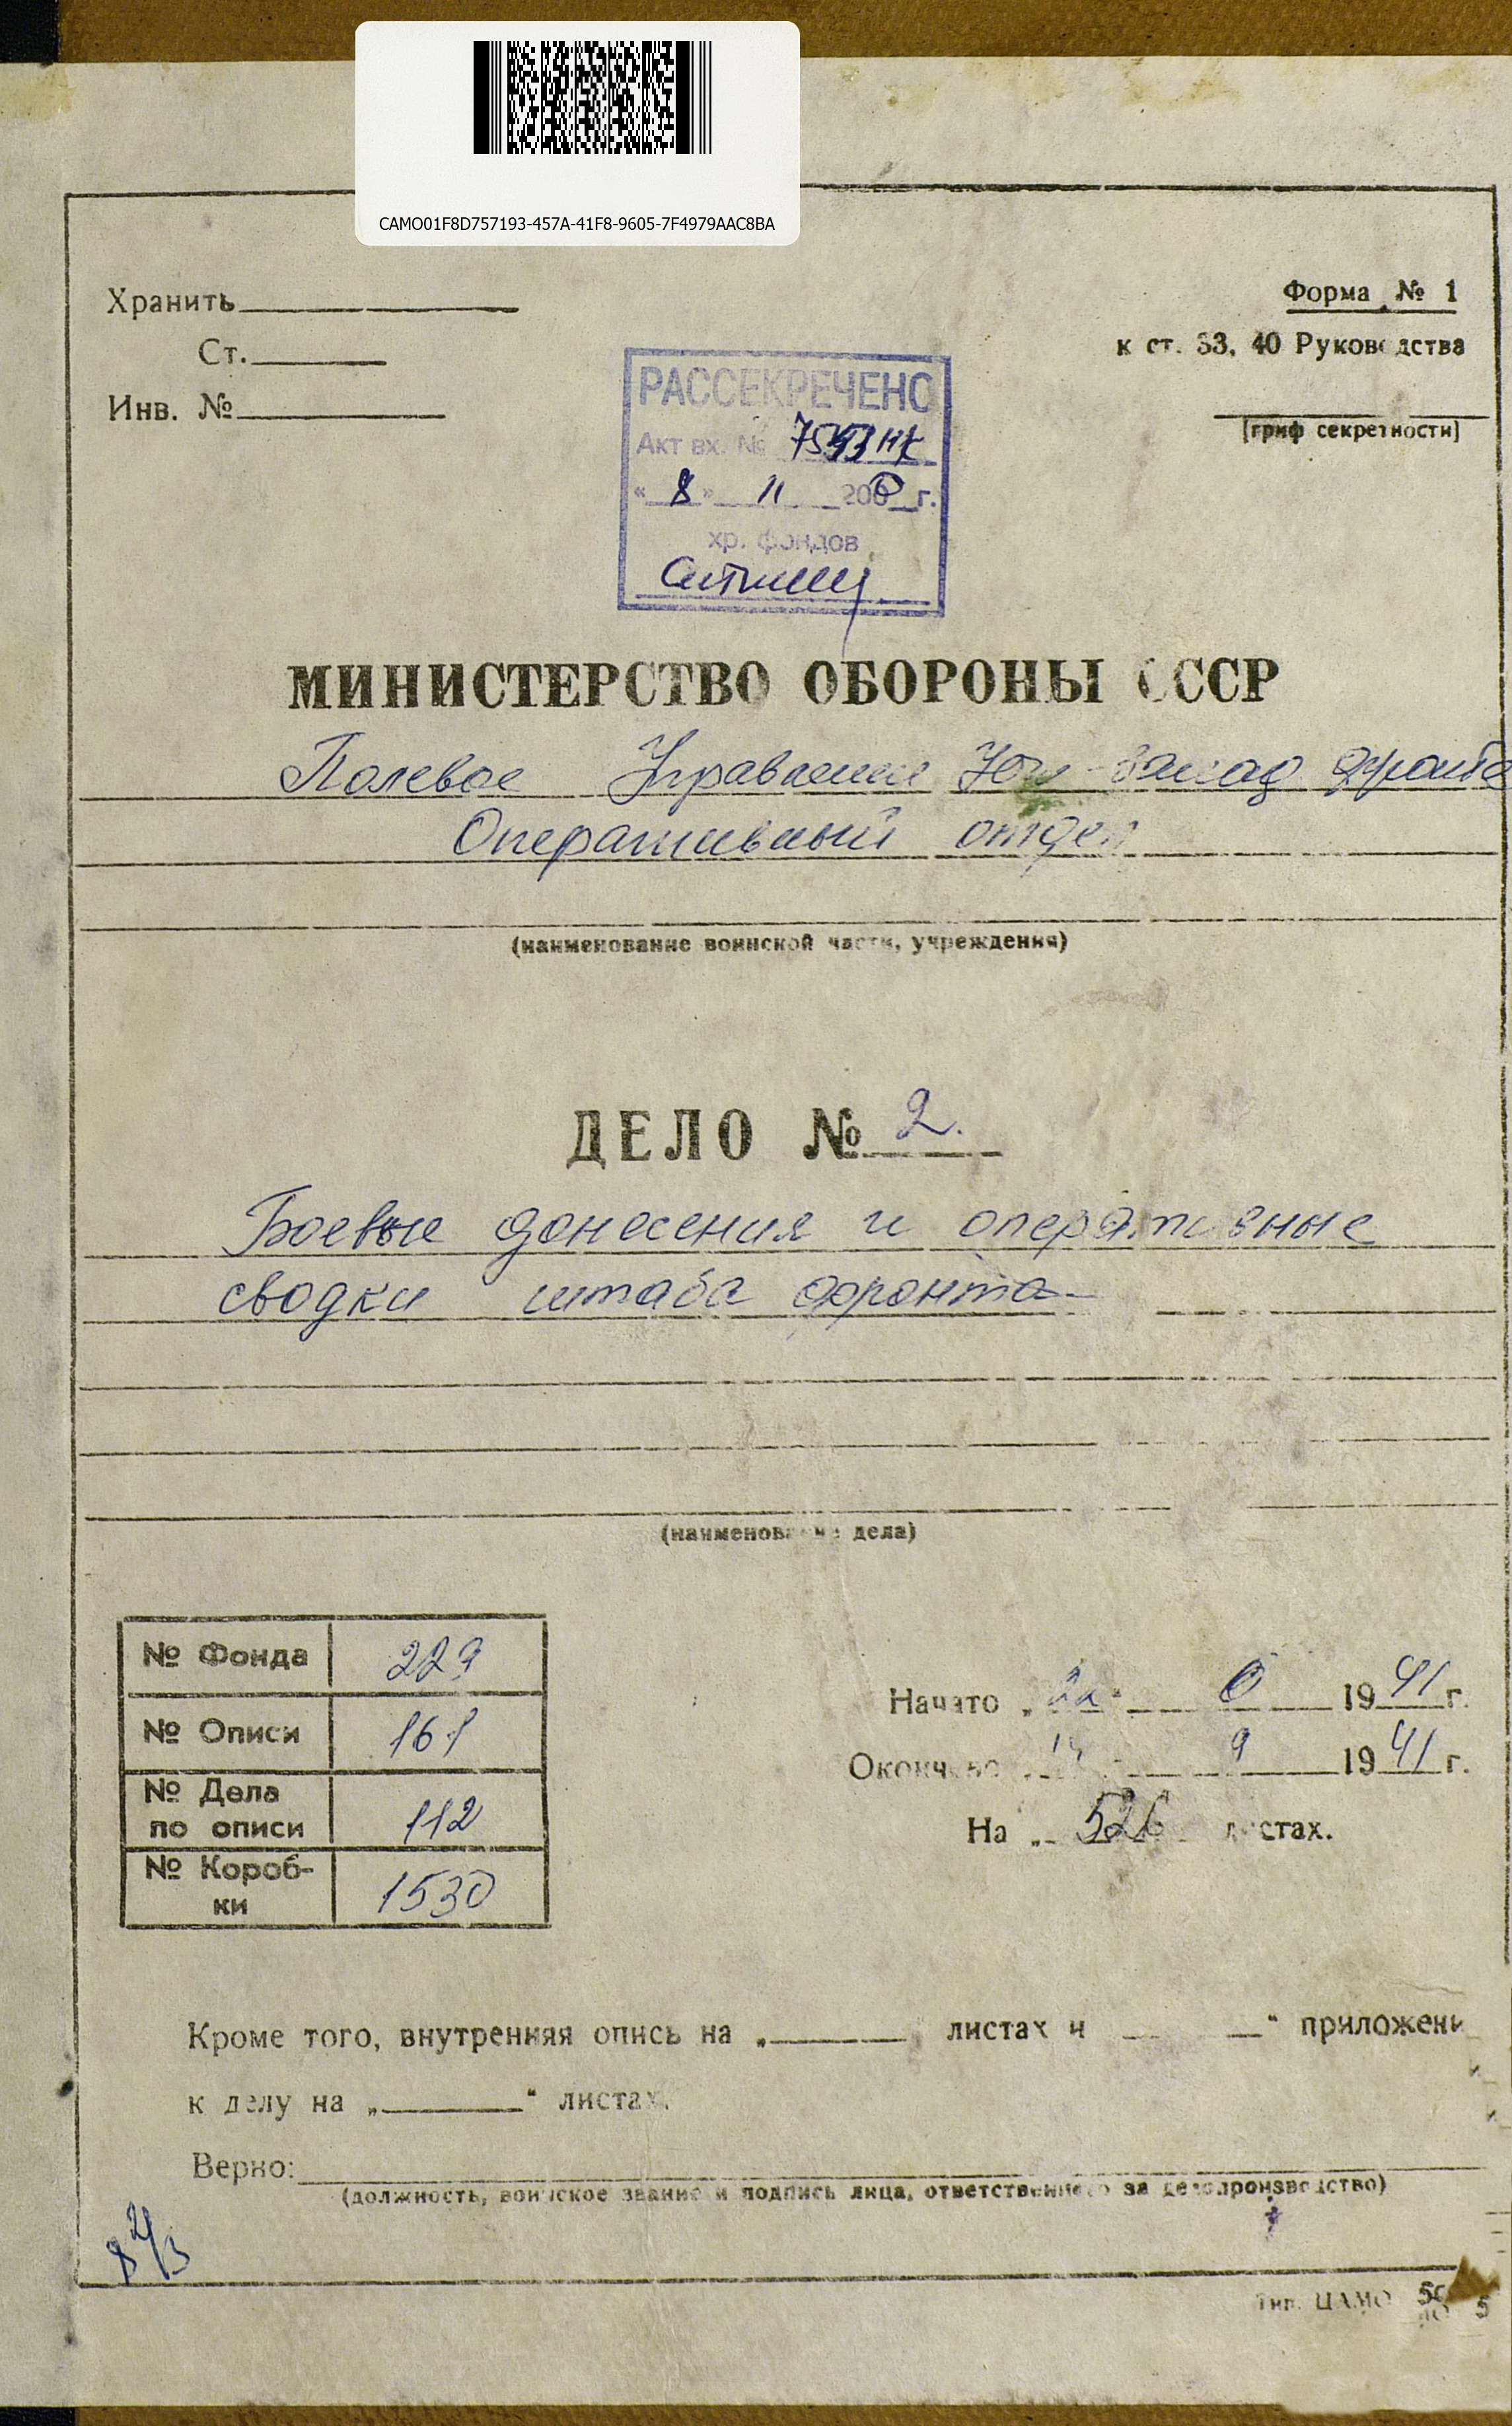 CAMO01F8D757193-457A-41F8-9605-7F4979AAC8BA
Хранить
Ст.
Инв. №
Форма № 1
к ст. 33, 40 Руководства
(гриф секретности)
РАССЕКРЕЧЕНО
Акт вх. №
« 8 » 11 200 г.
хр. фондов
МИНИСТЕРСТВО ОБОРОНЫ СССР
Полевое Управление Юго-Запад фронта
Оперативный отдел
(наименование воинской части, учреждения)
ДЕЛО № 2.
Боевые донесения и оперативные
сводки штаба фронта
(наименование дела)
№ Фонда 229
№ Описи 161
№ Дела
по описи 112
№ Короб-
ки 1530
Начато „ “ 1941 г.
Окончено 9 1941 г.
На „ 526 листах.
Кроме того, внутренняя опись на „ “ листах и “ приложени
к делу на „ “ листах.
Верно:
(должность, воинское звание и подпись лица, ответственного за делопроизводство)
Тип. ЦАМО